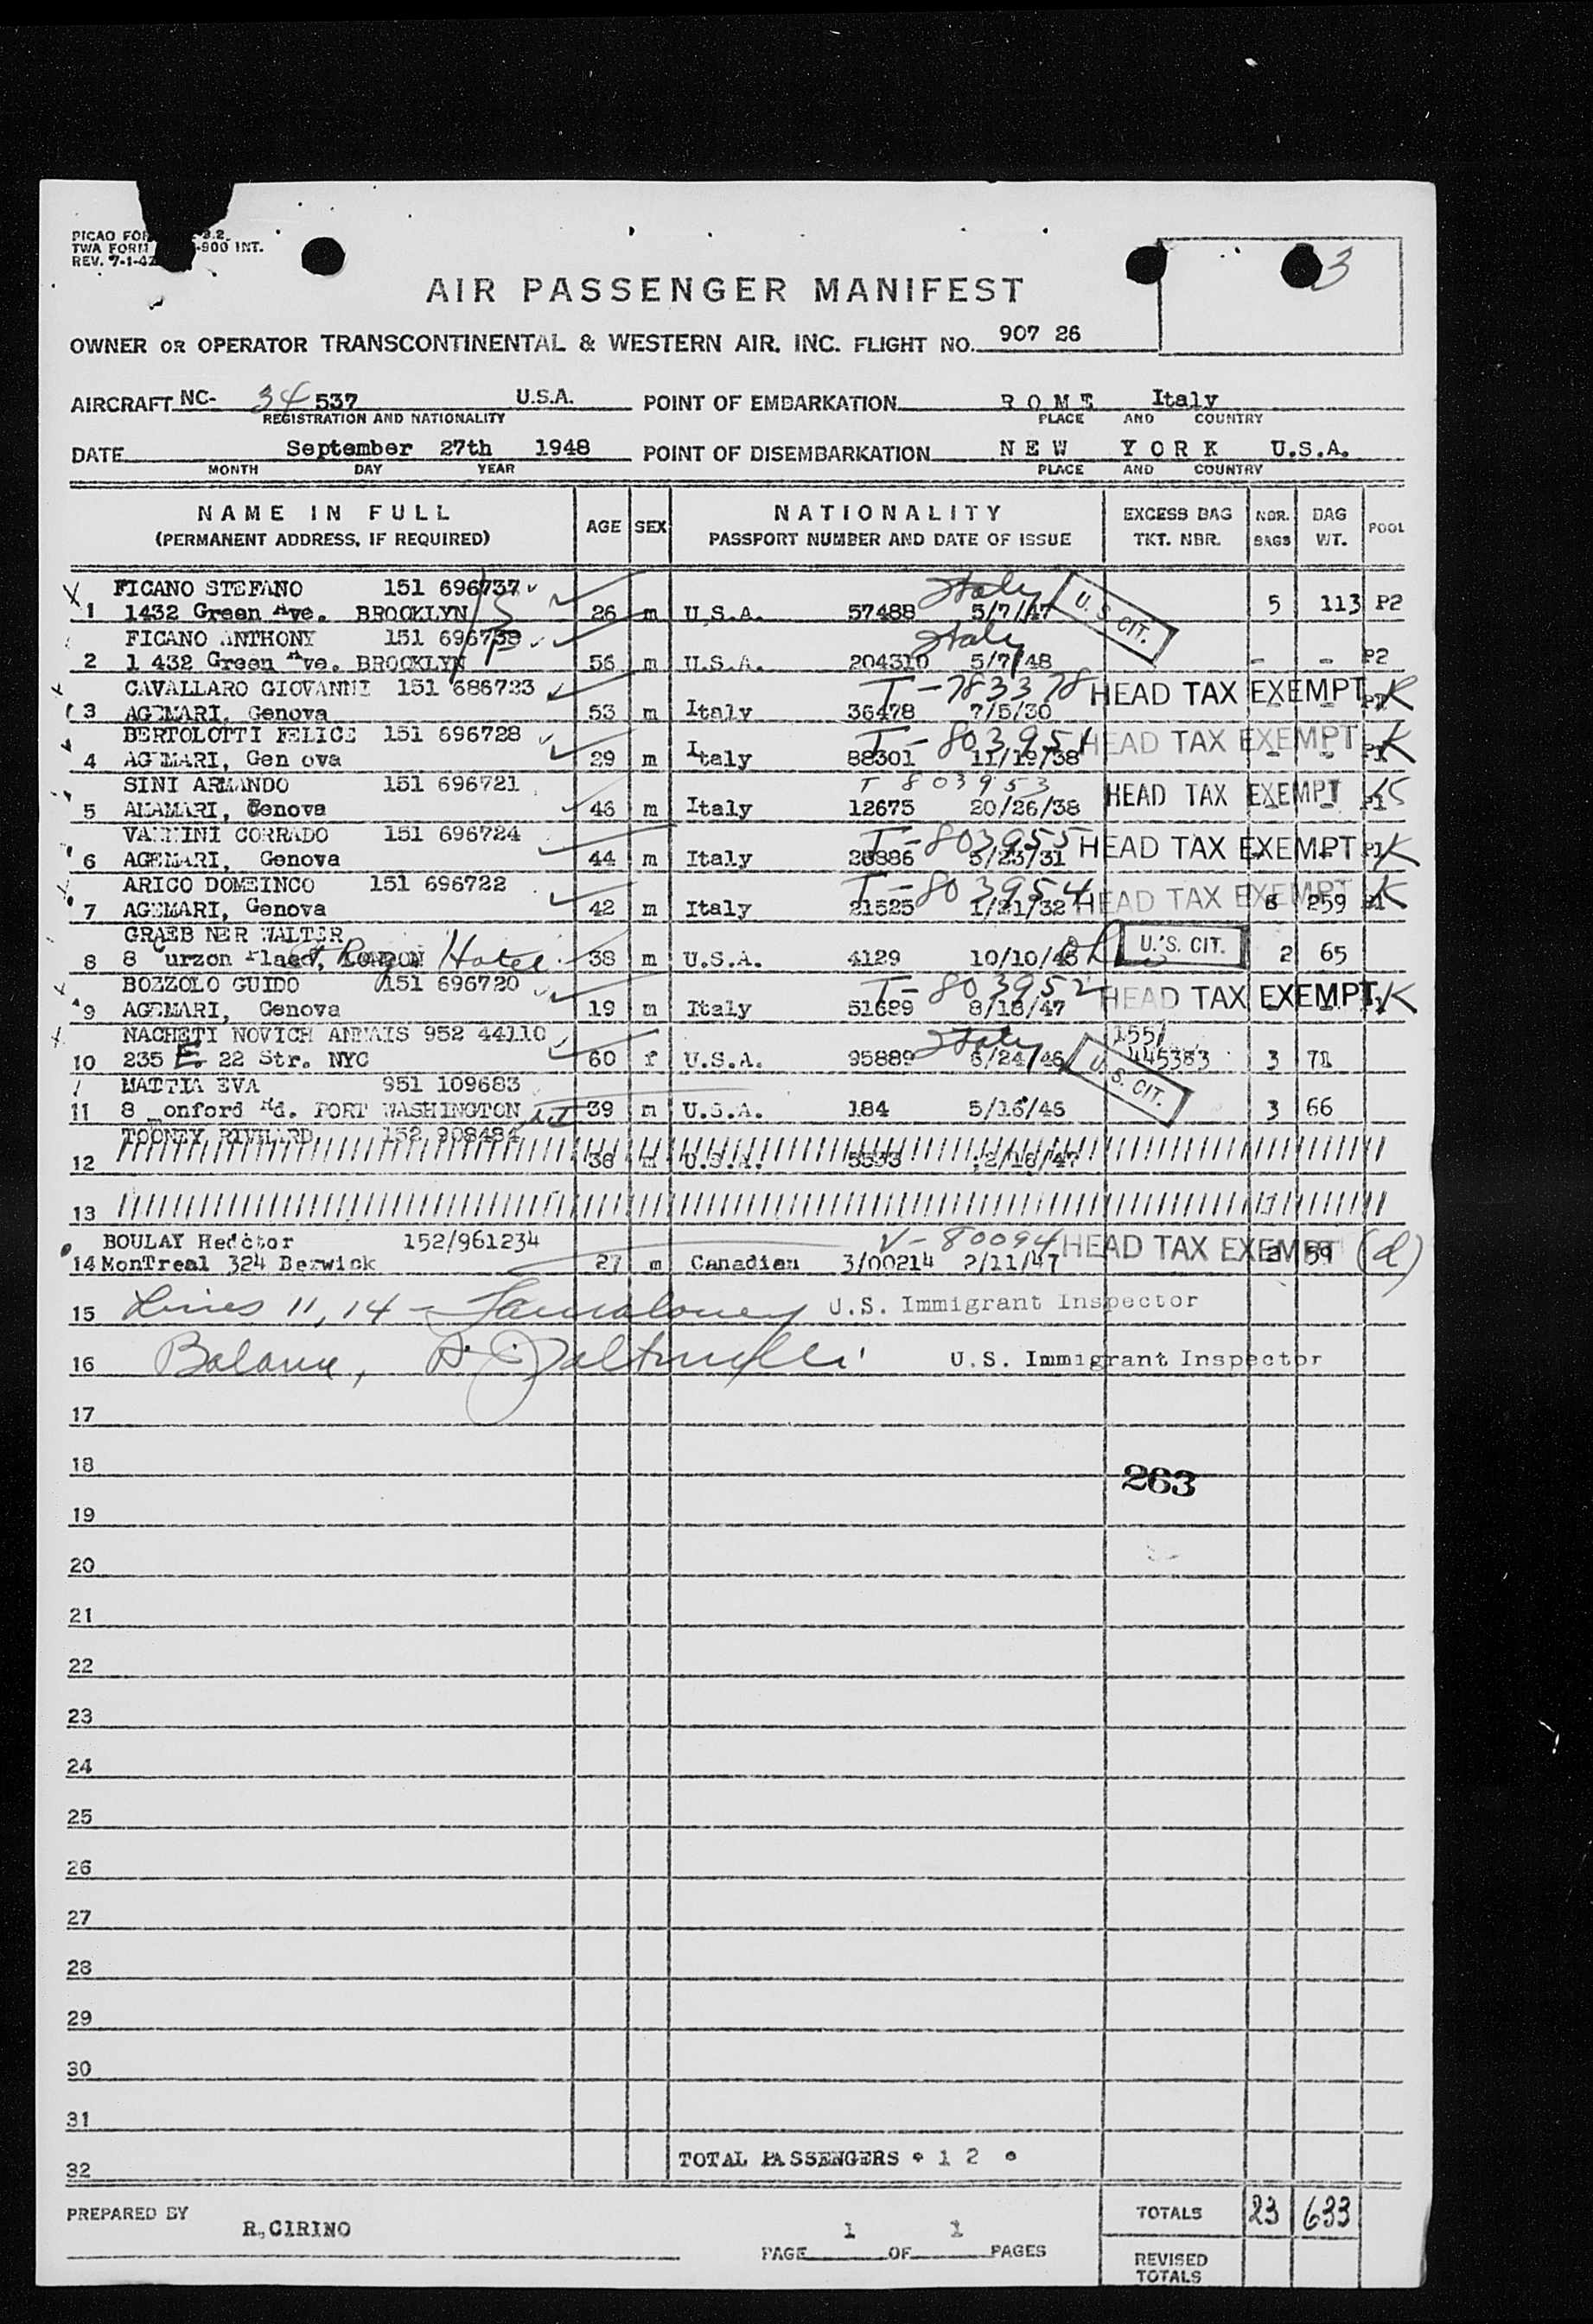 PICAO FOR 3.2.
TWA FORM -900 INT.
REV. 7-1-47
3
AIR PASSENGER MANIFEST
OWNER OR OPERATOR TRANSCONTINENTAL & WESTERN AIR, INC. FLIGHT NO. 907 26
AIRCRAFT NC- 34 537 U.S.A. POINT OF EMBARKATION ROME Italy
REGISTRATION AND NATIONALITY PLACE AND COUNTRY
DATE September 27th 1948 POINT OF DISEMBARKATION NEW YORK U.S.A.
MONTH DAY YEAR PLACE AND COUNTRY
NAME IN FULL AGE SEX NATIONALITY EXCESS BAG NBR. BAG POOL
(PERMANENT ADDRESS, IF REQUIRED) PASSPORT NUMBER AND DATE OF ISSUE TKT. NBR. BAGS WT.
X FICANO STEFANO 151 696737 Italy U.S. CIT.
1 1432 Green Ave. BROOKLYN 26 m U.S.A. 57488 5/7/47 5 113 P2
FICANO ANTHONY 151 696738 Italy
2 1 432 Green Ave. BROOKLYN 56 m U.S.A. 204310 5/7/48 - - P2
CAVALLARO GIOVANNI 151 686723 T-783378 HEAD TAX EXEMPT K
3 AGEMARI, Genova 53 m Italy 36478 7/5/30 - -
BERTOLOTTI FELICE 151 696728 T-803951 HEAD TAX EXEMPT K
4 AGEMARI, Gen ova 29 m Italy 88301 11/19/38 - - P1
SINI ARMANDO 151 696721 T 803953 HEAD TAX EXEMPT K
5 AMAMARI, Genova 46 m Italy 12675 20/26/38 - - P1
VANNINI CORRADO 151 696724 T-803955 HEAD TAX EXEMPT K
6 AGEMARI, Genova 44 m Italy 26886 5/23/31 - - P1
ARICO DOMEINCO 151 696722 T-803954 HEAD TAX EXEMPT K
7 AGEMARI, Genova 42 m Italy 21525 1/21/32 8 259
GRAEB NER WALTER U.S. CIT.
8 8 Curzon Place, LONDON Hotel 38 m U.S.A. 4129 10/10/46 2 65
BOZZOLO GUIDO 151 696720 T-803952 HEAD TAX EXEMPT K
9 AGEMARI, Genova 19 m Italy 51689 8/18/47
NACHETI NOVICH ANNAIS 952 44110 Italy 155/
10 235 E. 22 Str. NYC 60 f U.S.A. 95889 6/24/46 445383 3 71
MATTIA EVA 951 109683 U.S. CIT.
11 8 onford Rd. PORT WASHINGTON 39 m U.S.A. 184 5/16/46 3 66
TOONEY RIVHARD 152 908484
12 38 m U.S.A. 5593 12/18/47
13
BOULAY Hedctor 152/961234 V-80094 HEAD TAX EXEMPT (d)
14 MonTreal 324 Berwick 27 m Canadian 3/00214 2/11/47 2 59
15 Lines 11, 14 - U.S. Immigrant Inspector
16 Balance, U.S. Immigrant Inspector
17
18 263
19
20
21
22
23
24
25
26
27
28
29
30
31
32 TOTAL PASSENGERS * 1 2 *
PREPARED BY R.CIRINO
PAGE 1 OF 1 PAGES
TOTALS 23 633
REVISED TOTALS